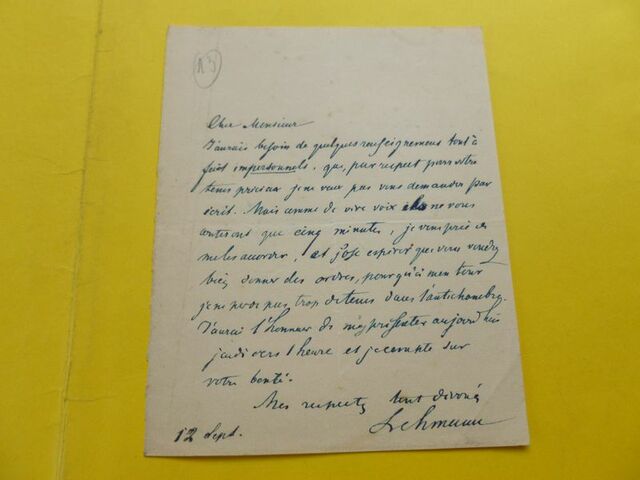 Cher Monsieur
J'aurais besoin de quelques renseignemens tout à
fait impersonnels, que, par respect pour votre
tems précieux je ne veux pas vous demander par
écrit. Mais comme de vive voix ils ne vous
couteront que cinq minutes, je vous prie de
me les accorder, et j'ose espérer que vous voudrez
bien donner des ordres, pour qu'à mon tour
je ne perde pas trop de tems dans l'antichambre.
J'aurai l'honneur de me présenter aujourd'hui
jeudi vers 1 heure et je compte sur
votre bonté.
Mes respects tout dévoué
Lehmann
12 Sept.